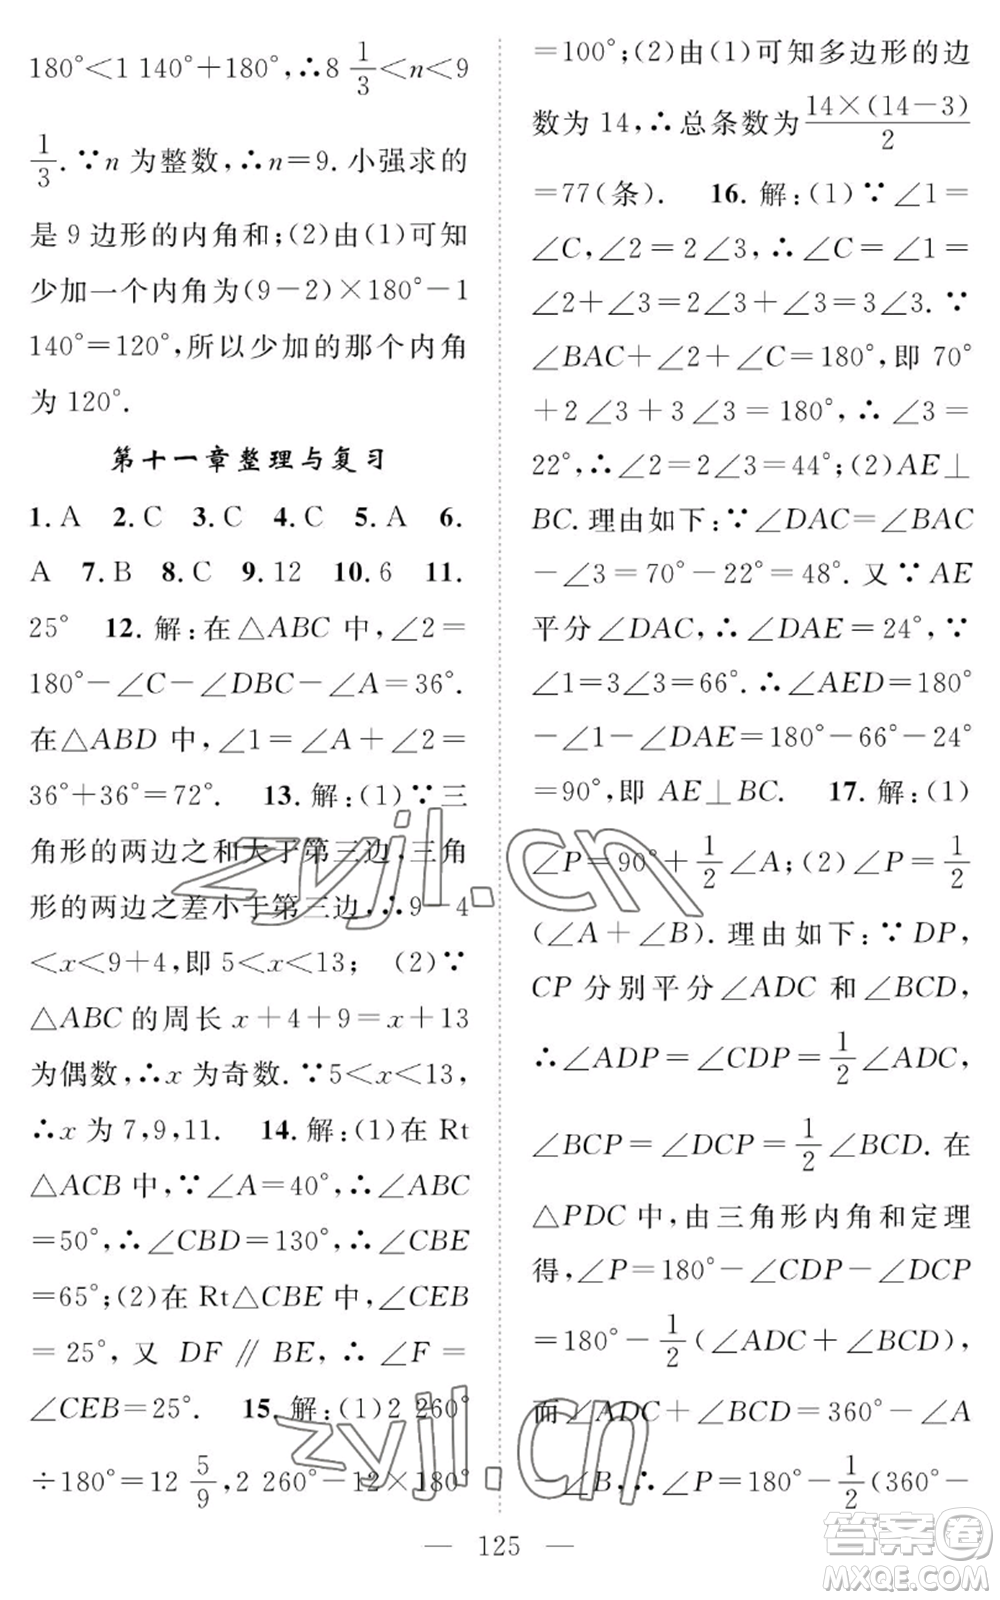 180°<1 140°+180°,∴8 1/3<n<9
1/3.∵n 为整数,∴n=9.小强求的
是 9 边形的内角和;(2)由(1)可知
少加一个内角为(9-2)×180°-1
140°=120°,所以少加的那个内角
为 120°.
第十一章整理与复习
1.A 2.C 3.C 4.C 5.A 6.
A 7.B 8.C 9.12 10.6 11.
25° 12.解:在△ABC 中,∠2=
180°-∠C-∠DBC-∠A=36°.
在△ABD 中,∠1=∠A+∠2=
36°+36°=72°. 13.解:(1)∵三
角形的两边之和大于第三边,三角
形的两边之差小于第三边,∴9-4
<x<9+4,即 5<x<13; (2)∵
△ABC 的周长 x+4+9=x+13
为偶数,∴x 为奇数.∵5<x<13,
∴x 为 7,9,11. 14.解:(1)在 Rt
△ACB 中,∵∠A=40°,∴∠ABC
=50°,∴∠CBD=130°,∴∠CBE
=65°;(2)在 Rt△CBE 中,∠CEB
=25°,又 DF∥BE,∴∠F=
∠CEB=25°. 15.解:(1)2 260°
÷180°=12 5/9,2 260°-12×180°
=100°;(2)由(1)可知多边形的边
数为 14,∴总条数为14×(14-3)/2
=77(条). 16.解:(1)∵∠1=
∠C,∠2=2∠3,∴∠C=∠1=
∠2+∠3=2∠3+∠3=3∠3.∵
∠BAC+∠2+∠C=180°,即 70°
+2∠3+3∠3=180°,∴∠3=
22°,∴∠2=2∠3=44°;(2)AE⊥
BC.理由如下:∵∠DAC=∠BAC
-∠3=70°-22°=48°.又∵AE
平分∠DAC,∴∠DAE=24°,∵
∠1=3∠3=66°.∴∠AED=180°
-∠1-∠DAE=180°-66°-24°
=90°,即 AE⊥BC. 17.解:(1)
∠P=90°+1/2∠A;(2)∠P=1/2
(∠A+∠B).理由如下:∵DP,
CP 分别平分∠ADC 和∠BCD,
∴∠ADP=∠CDP=1/2∠ADC,
∠BCP=∠DCP=1/2∠BCD.在
△PDC 中,由三角形内角和定理
得,∠P=180°-∠CDP-∠DCP
=180°-1/2(∠ADC+∠BCD),
而∠ADC+∠BCD=360°-∠A
-∠B,∴∠P=180°-1/2(360°-
— 125 —
zyjl.cn
zyjl.cn
答案卷
MXQE.COM